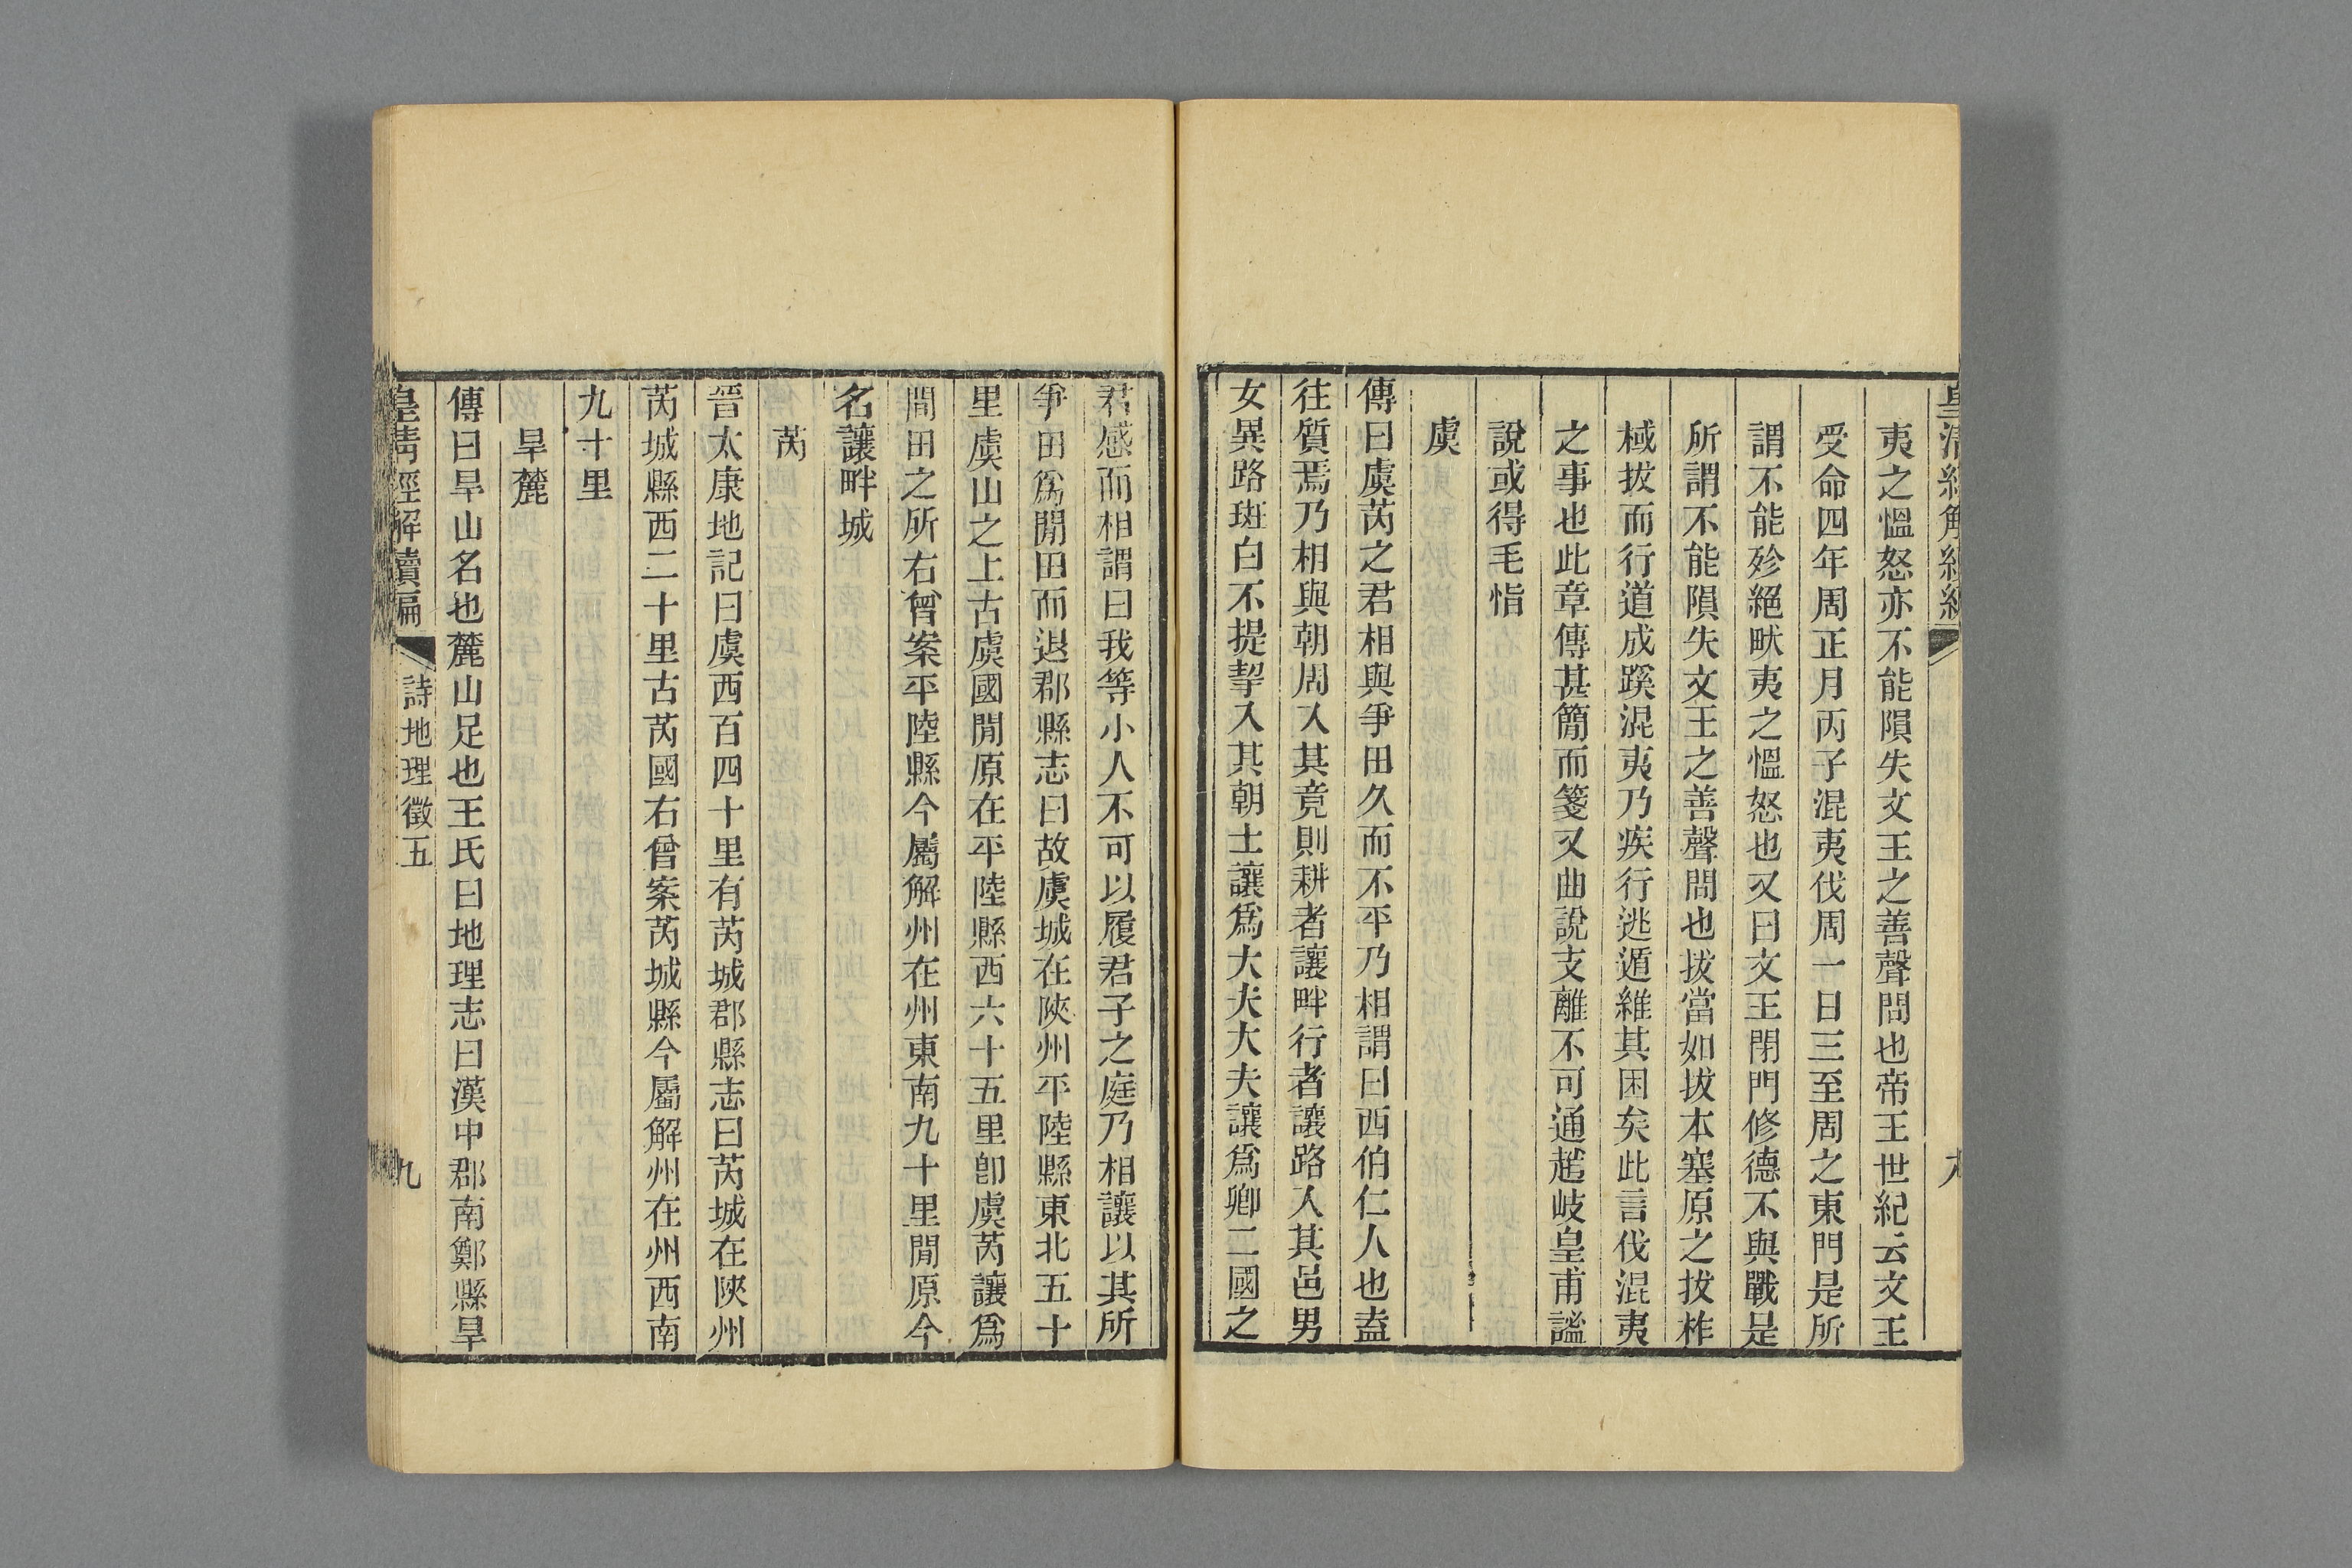 夷之慍怒亦不能隕失文王之善聲問也帝王世紀云文王
受命四年周正月丙子混夷伐周一日三至周之東門是所
謂不能殄絕畎夷之慍怒也又曰文王閉門修德不與戰是
所謂不能隕失文王之善聲問也拔當如拔本塞原之拔柞
棫拔而行道成蹊混夷乃疾行逃遁維其困矣此言伐混夷
之事也此章傳甚簡而箋又曲說支離不可通趙岐皇甫謐
說或得毛恉
虞
傳曰虞芮之君相與爭田久而不平乃相謂曰西伯仁人也盍
往質焉乃相與朝周入其竟則耕者讓畔行者讓路入其邑男
女異路斑白不提挈入其朝士讓爲大夫大夫讓爲卿二國之
君感而相謂曰我等小人不可以履君子之庭乃相讓以其所
爭田爲閒田而退郡縣志曰故虞城在陝州平陸縣東北五十
里虞山之上古虞國閒原在平陸縣西六十五里卽虞芮讓爲
閒田之所右曾案平陸縣今屬解州在州東南九十里閒原今
名讓畔城
芮
晉太康地記曰虞西百四十里有芮城郡縣志曰芮城在陝州
芮城縣西二十里古芮國右曾案芮城縣今屬解州在州西南
九十里
旱麓
傳曰旱山名也麓山足也王氏曰地理志曰漢中郡南鄭縣旱
皇清經解續編
詩地理徵五
九